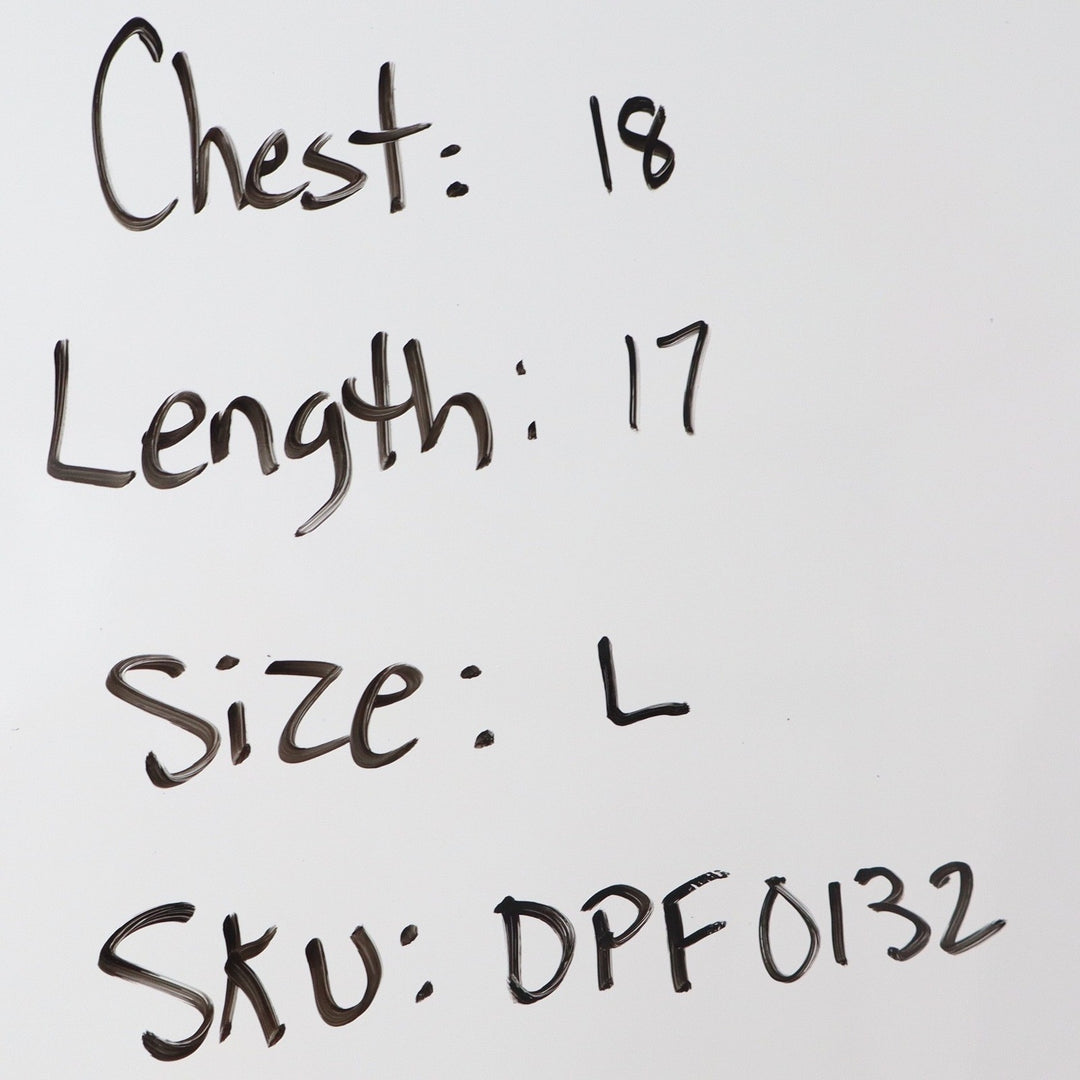 Chest: 18
Length: 17
Size: L
Sku: DPF0132